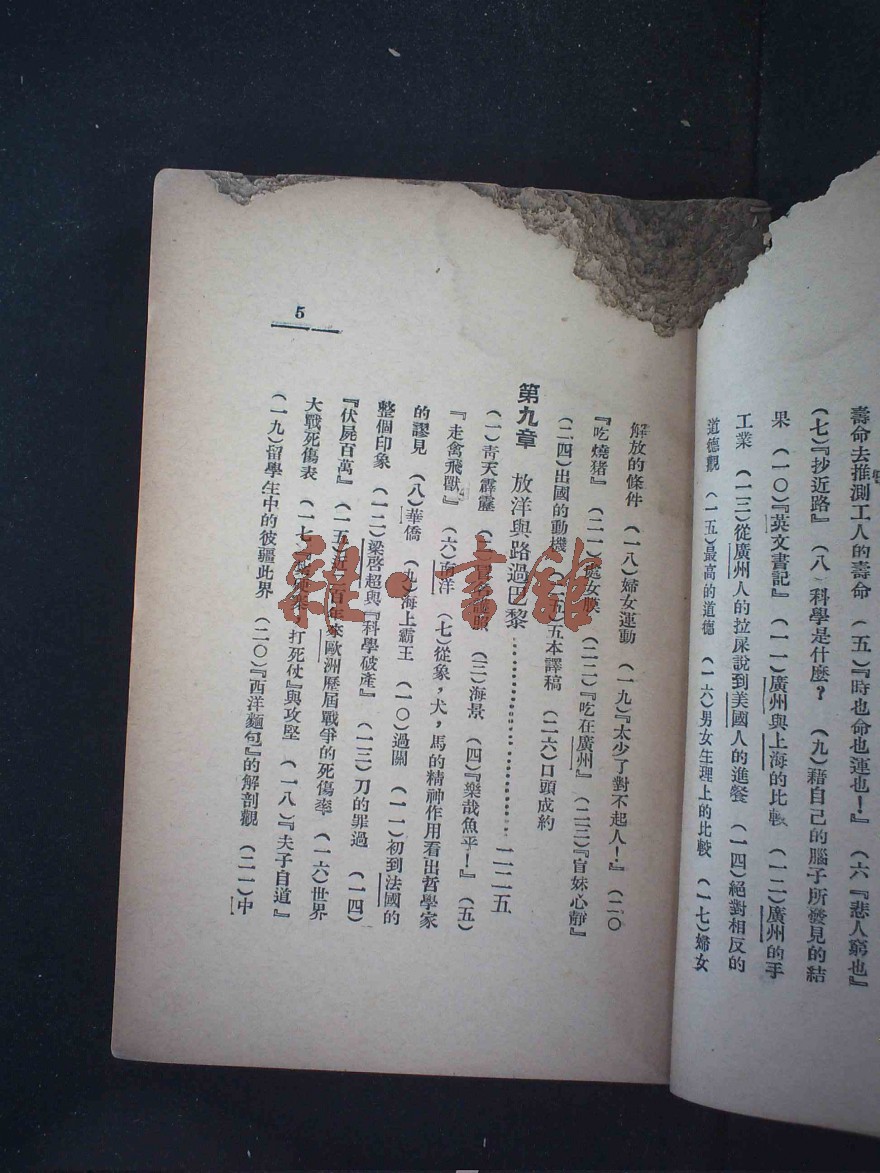 壽命去推測工人的壽命 (五)『時也命也運也!』 (六『悲人窮也』
(七)『抄近路』 (八)科學是什麼? (九)藉自己的腦子所發見的結
果 (一〇)『英文書記』 (一一)廣州與上海的比較 (一二)廣州的手
工業 (一三)從廣州人的拉屎說到美國人的進餐 (一四)絕對相反的
道德觀 (一五)最高的道德 (一六)男女生理上的比較 (一七)婦女
解放的條件 (一八)婦女運動 (一九)『太少了對不起人!』 (二〇
『吃燒猪』 (二一)處女膜 (二二)『吃在廣州』 (二三)『盲妹心靜』
(二四)出國的動機 (二五)五本譯稿 (二六)口頭成約
第九章 放洋與路過巴黎 二二五
(一)青天霹靂 (二)官客護照 (三)海景 (四)『樂哉魚乎!』 (五)
『走禽飛獸』 (六)南洋 (七)從象,犬,馬的精神作用看出哲學家
的謬見 (八)華僑 (九)海上霸王 (一〇)過關 (一一)初到法國的
整個印象 (一二)梁啓超與『科學破產』 (一三)刀的罪過 (一四)
『伏屍百萬』 (一五)近一百年來歐洲歷屆戰爭的死傷率 (一六)世界
大戰死傷表 (一七)打死仗』與攻堅 (一八)『夫子自道』
(一九)留學生中的彼疆此界 (二〇)『西洋麵包』的解剖觀 (二一)中
5
書館